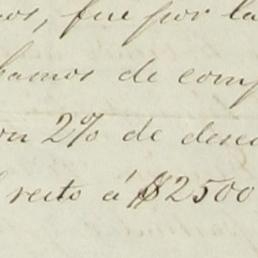 nos, fue por la
hamos de comp
on 2% de desc
l resto á $2500